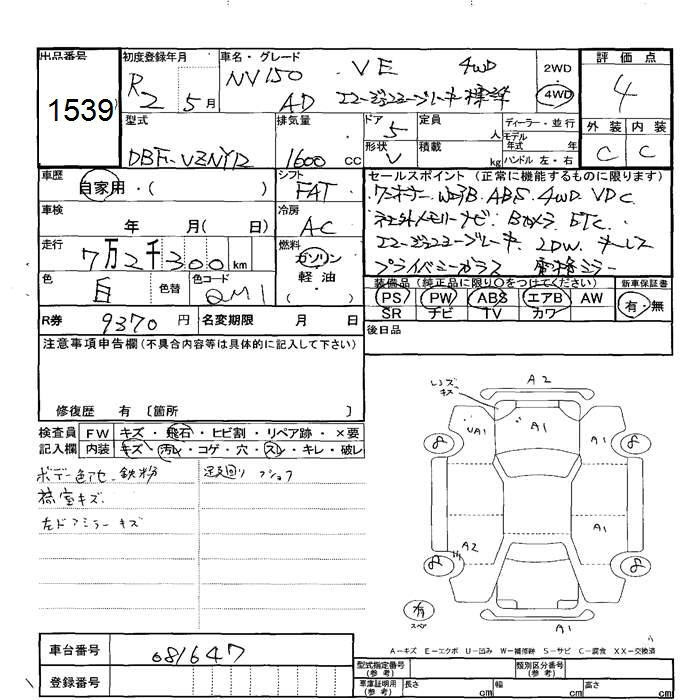 出品番号 初度登録年月 車名・グレード 評価点
1539
R2 5月
NV150 VE 4WD
AD エマージェンシーブレーキ 標準
2WD
4WD
4
型式 排気量 ドア 定員 ディーラー・並行 外装 内装
DBF-VZNY12 1600cc 5 人 モデル年式 年
形状 積載 ハンドル 左・右
V kg
C C
車歴 シフト セールスポイント (正常に機能するものに限ります)
自家用・( ) FAT
ワンオーナー WエアB ABS 4WD VDC
車検 冷房
年 月( 日) AC
社外メモリーナビ Bカメラ ETC
走行 燃料
7万2千300km ガソリン
軽・油
エマージェンシーブレーキ LDW キーレス
プライバシーガラス 電格ミラー
色 色替 色コード
白 QM1
( )
装備品 (純正品に限り○をつけてください) 新車保証書
PS PW ABS エアB AW
SR ナビ TV カワ
有・無
R券 9370円 名変期限 月 日
後日品
注意事項申告欄(不具合内容等は具体的に記入して下さい)
修復歴 有 〔箇所 〕
検査員 FW キズ・飛石・ヒビ割・リペア跡・×要
記入欄 内装 キズ・汚レ・コゲ・穴・スレ・キレ・破レ
ボデー色アセ 鉄粉
足廻り
荷室キズ
左ドアミラーキズ
レンズキズ
A2
A1
UA1
A1
8
8
A2
A1
8
8
A1
有
スペア
A-キズ E-エクボ U-凹み W-補修跡 S-サビ C-腐食 XX-交換済
車台番号 081647
登録番号
型式指定番号(参考) 類別区分番号(参考)
車庫証明用(参考) 長さ cm 幅 cm 高さ cm